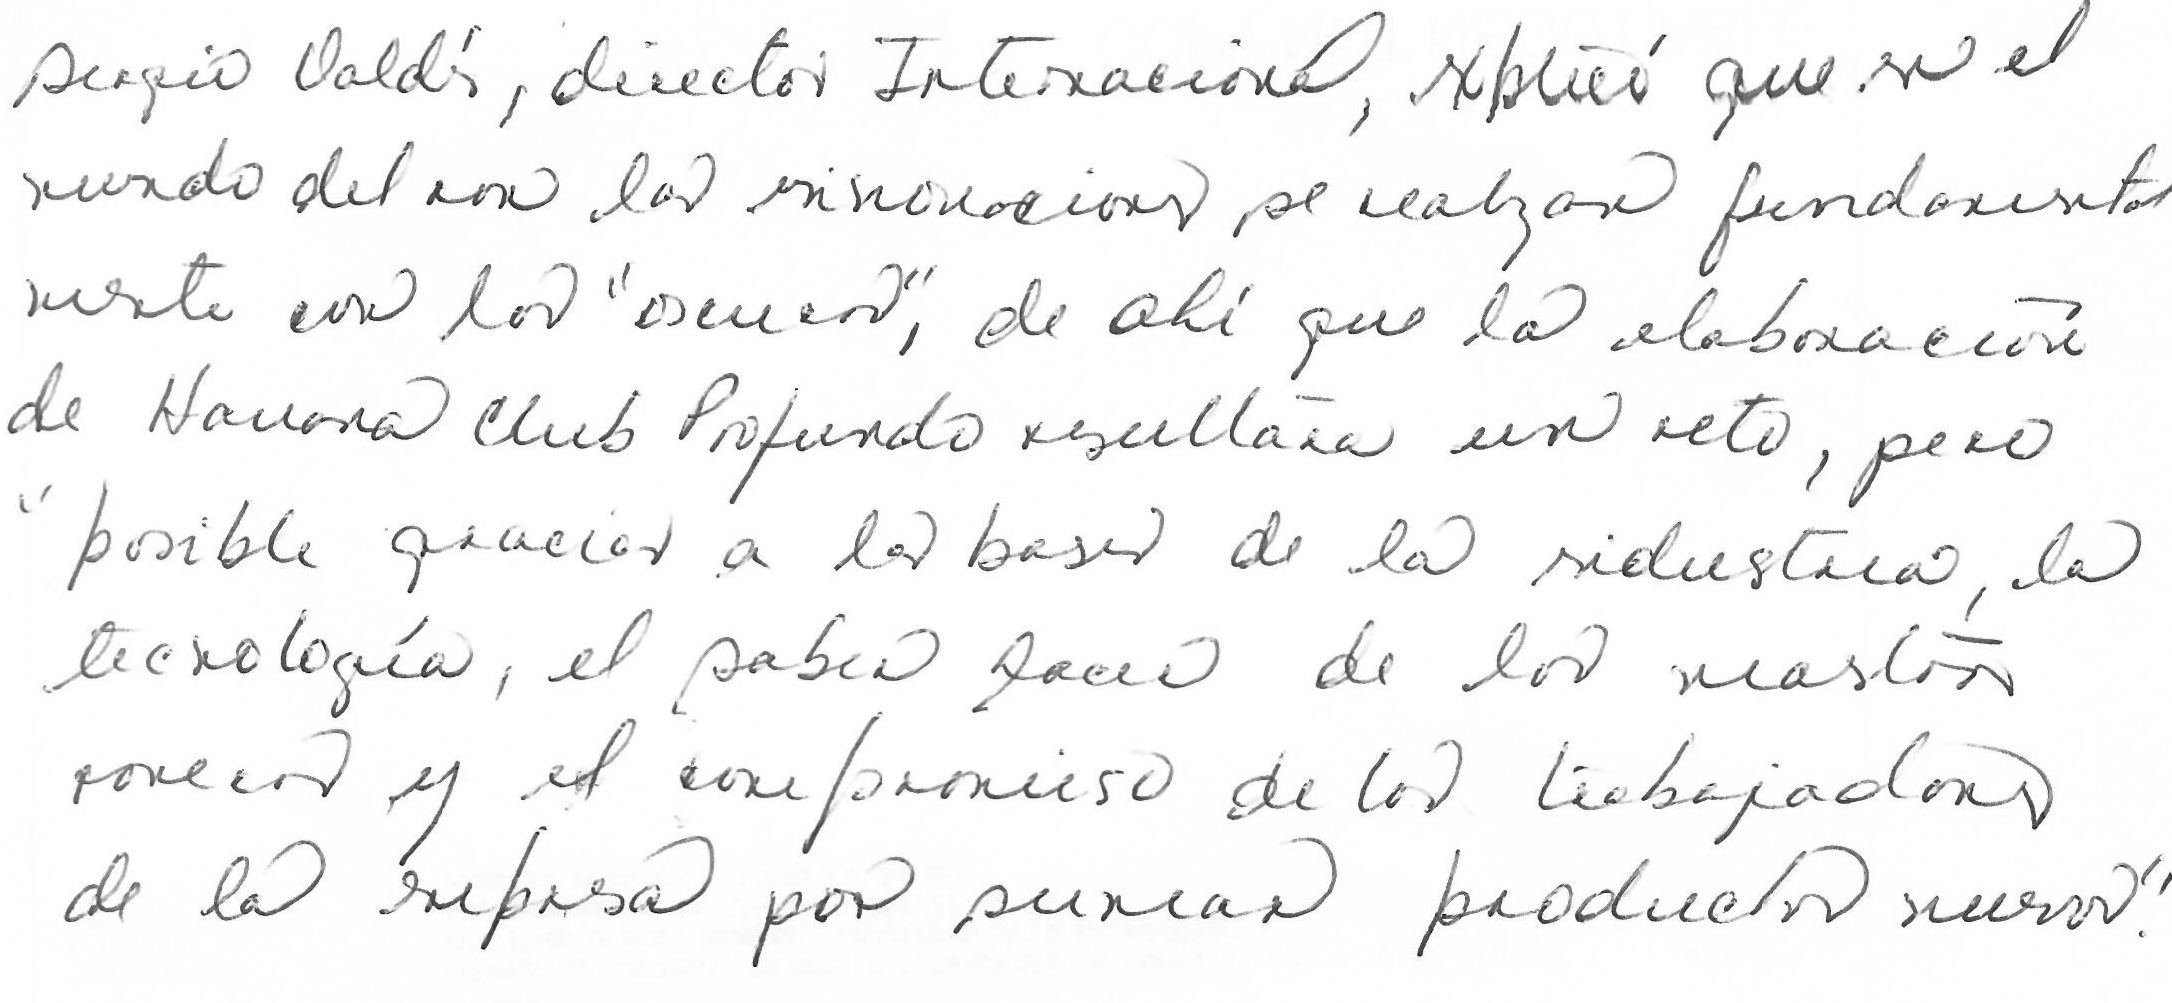 Sergio Valdés, director Internacional, explicó que en el
mundo del ron las innovaciones se realizan fundamental
mente con los "oscuros", de ahí que la elaboración
de Havana Club Profundo resultara un reto, pero
"posible gracias a las bases de la industria, la
tecnología, el saber hacer de los maestros
roneros y el compromiso de los trabajadores
de la empresa por sumar productos nuevos".